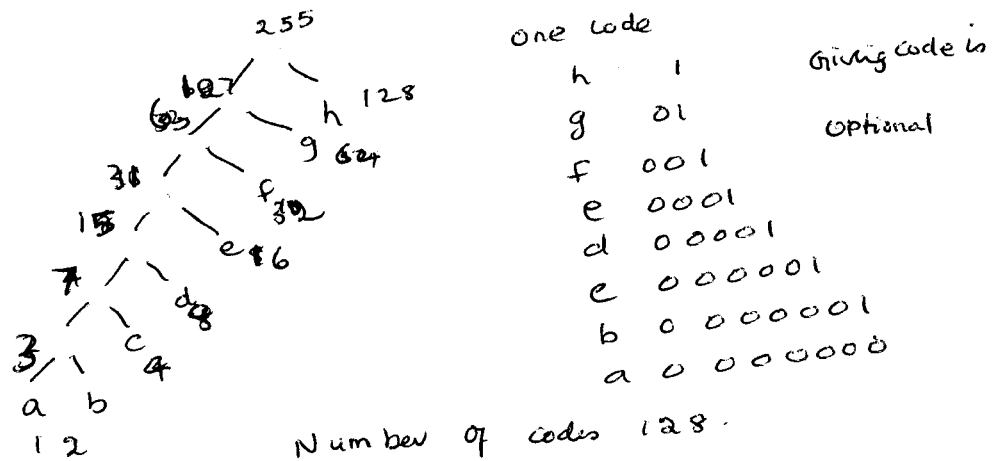 255
127
h 128
63
g 64
31
f 32
15
e 16
7
d 8
3
c 4
a b
1 2
one code
h 1
g 01
f 001
e 0001
d 00001
e 000001
b 0000001
a 0000000
Giving code is
optional
Number of codes 128.